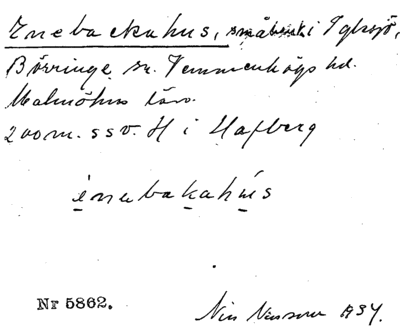 Enebackahus, småbruk i Yglesjö,
Börringe sn. Vemmenhögs hd.
Malmöhus län.
200 m. ssv. H i Hafberg
enebakahus
Nr 5862.
Nils Nilsson 1934.